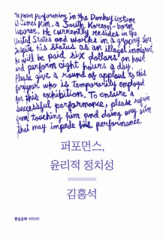 The person performing in the Donkey costume
is James Kim, a South Korean-born
laborer. He currently resides in the
United States and works in a
despite his status as an illegal immigrant.
He will be paid six dollars an hour
and perform eight hours a day.
Please give a round of applause to this
proper who is temporarily employed
for this exhibition. To ensure a
successful performance, please refrain
from touching him and doing any action
that may impede his performance.
퍼포먼스,
윤리적 정치성
김홍석
현실문화